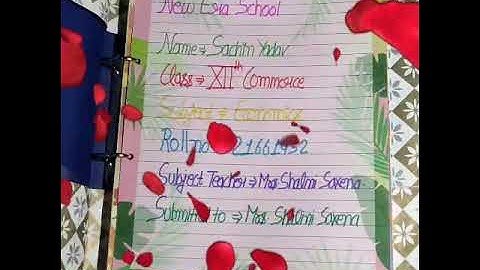 New Era School
Name ⇒ Sachin Yadav
Class ⇒ XIIth Commerce
Subject ⇒ Economics
Roll no
Subject Teacher ⇒ Mrs Shalini Saxena
Submitted to ⇒ Mrs Shalini Saxena